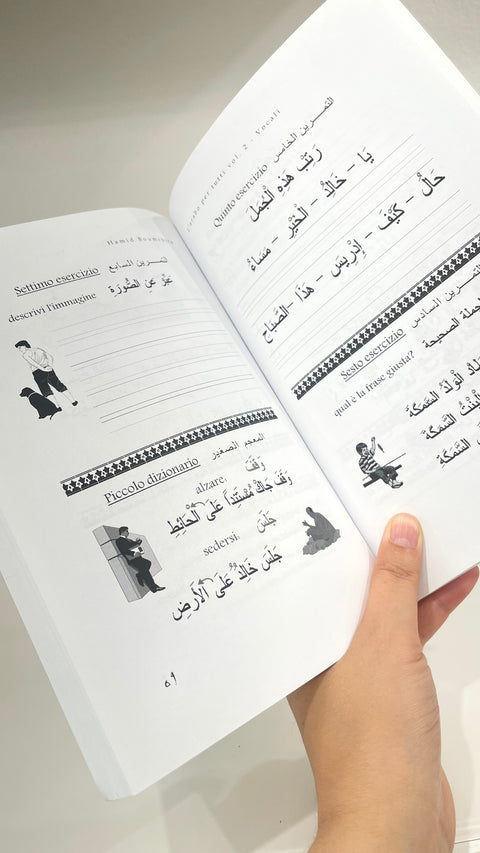 L'arabo per tutti vol. 2 - Vocali
Quinto esercizio التمرين الخامس
رَتِّب هَذِهِ الْجُمَلَ
يَا - خَالِدُ - الْخَيْرِ - مَسَاءُ
حَالُ - كَيْفَ - إدْرِيسَ - هَذَا - الصَّبَاحِ
Sesto esercizio التمرين السادس
qual è la frase giusta? الصحيحة
الْوَلَدُ السَّمَكَةَ
السَّمَكَةَ
السَّمَكَةِ
Hamid
Settimo esercizio التمرين السابع
descrivi l'immagine عَبِّرْ عَنِ الصُّورَةِ
Piccolo dizionario المعجم الصغير
alzare, وَقَفَ
وَقَفَ جَاكُ مُسْتَنِداً عَلَى الْحَائِطِ
sedersi, جَلَسَ
جَلَسَ خَالِدٌ عَلَى الْأَرْضِ
٥٩